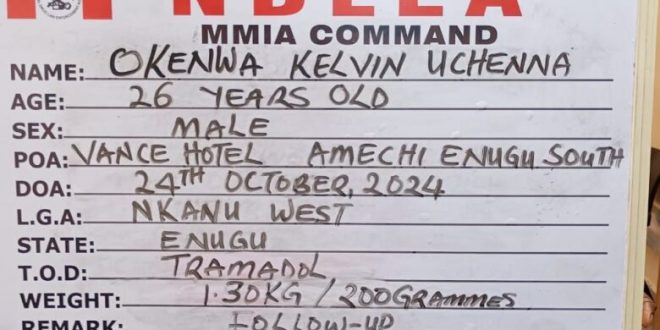 NDLEA
MMIA COMMAND
NAME: OKENWA KELVIN UCHENNA
AGE: 26 YEARS OLD
SEX: MALE
POA: VANCE HOTEL AMECHI ENUGU SOUTH
DOA: 24TH OCTOBER, 2024
L.G.A: NKANU WEST
STATE: ENUGU
T.O.D: TRAMADOL
WEIGHT: 1.30KG / 200GRAMMES
REMARK: FOLLOW-UP